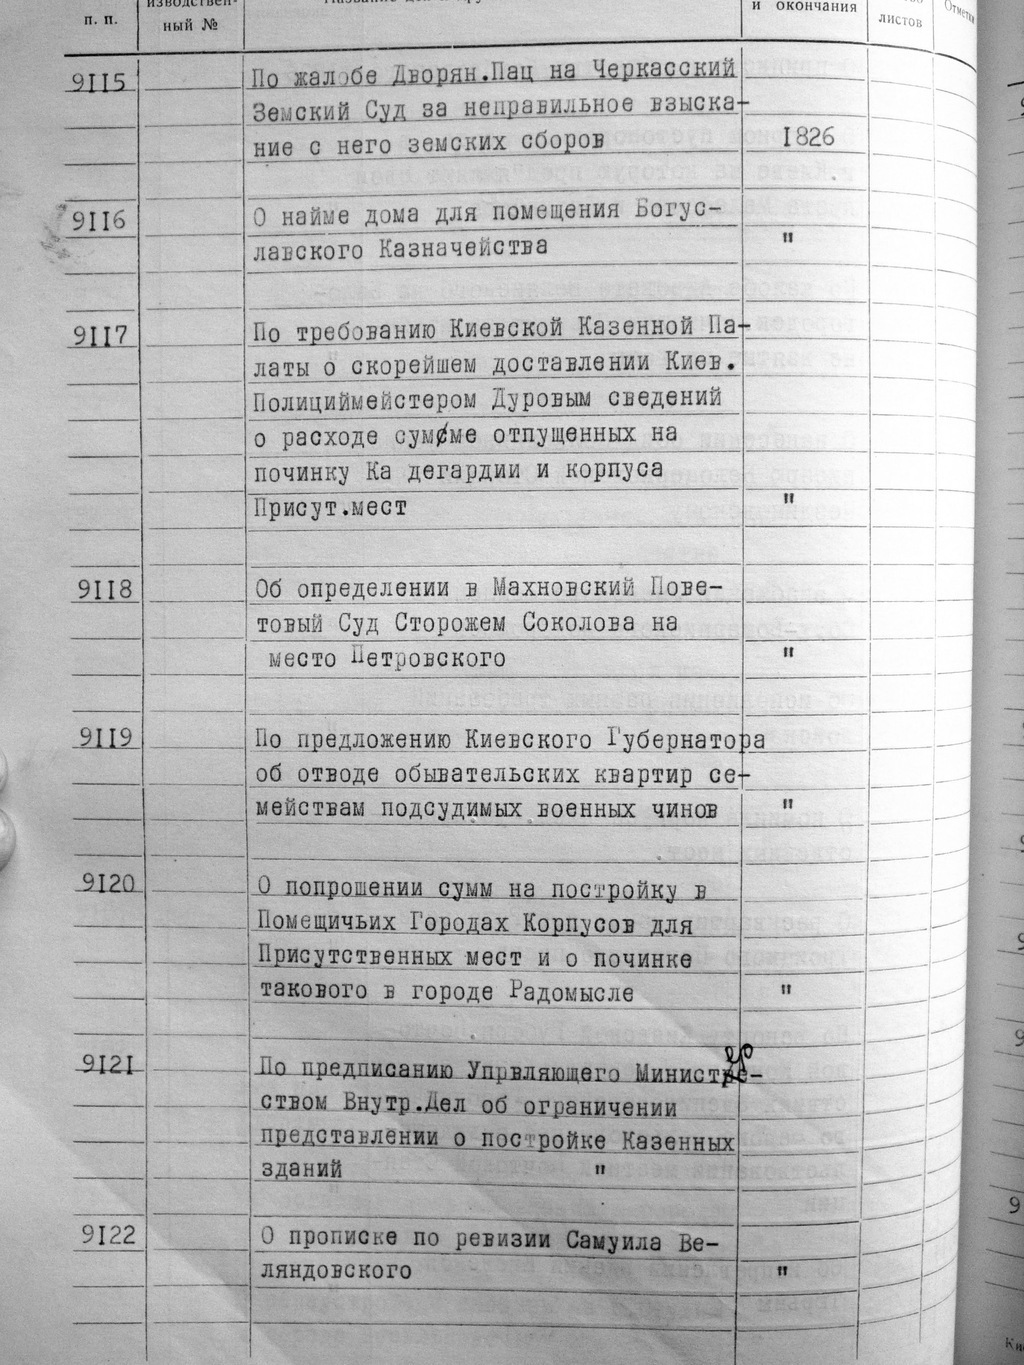 п. п.
ный №
и окончания
листов
Отметки
9115 По жалобе Дворян.Пац на Черкасский
Земский Суд за неправильное взыска-
ние с него земских сборов 1826
9116 О найме дома для помещения Богус-
лавского Казначейства "
9117 По требованию Киевской Казенной Па-
латы о скорейшем доставлении Киев.
Полициймейстером Дуровым сведений
о расходе сумме отпущенных на
починку Ка дегардии и корпуса
Присут.мест "
9118 Об определении в Махновский Пове-
товый Суд Сторожем Соколова на
место Петровского "
9119 По предложению Киевского Губернатора
об отводе обывательских квартир се-
мействам подсудимых военных чинов "
9120 О попрошении сумм на постройку в
Помещичьих Городах Корпусов для
Присутственных мест и о починке
такового в городе Радомысле "
9121 По предписанию Упрвляющего Министер-
ством Внутр.Дел об ограничении
представлении о постройке Казенных
зданий "
9122 О прописке по ревизии Самуила Ве-
ляндовского "